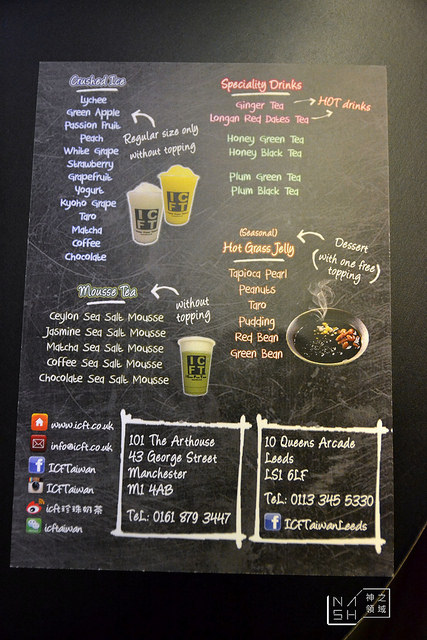 Crushed Ice
Lychee
Green Apple
Passion Fruit
Peach
White Grape
Strawberry
Grapefruit
Yogurt
Kyoho Grape
Taro
Matcha
Coffee
Chocolate
Regular size only
without topping
IC
FT
IC
FT
Speciality Drinks
Ginger Tea
Longan Red Dates Tea
HOT drinks
Honey Green Tea
Honey Black Tea
Plum Green Tea
Plum Black Tea
(Seasonal)
Hot Grass Jelly
Tapioca Pearl
Peanuts
Taro
Pudding
Red Bean
Green Bean
Dessert
(with one free
topping)
Mousse Tea
Ceylon Sea Salt Mousse
Jasmine Sea Salt Mousse
Matcha Sea Salt Mousse
Coffee Sea Salt Mousse
Chocolate Sea Salt Mousse
without
topping
IC
FT
www.icft.co.uk
info@icft.co.uk
ICFTaiwan
ICFTaiwan
icft珍珠奶茶
icftaiwan
101 The Arthouse
43 George Street
Manchester
M1 4AB
Tel: 0161 879 3447
10 Queens Arcade
Leeds
LS1 6LF
Tel: 0113 345 5330
ICFTaiwanLeeds
NASH
神之領域